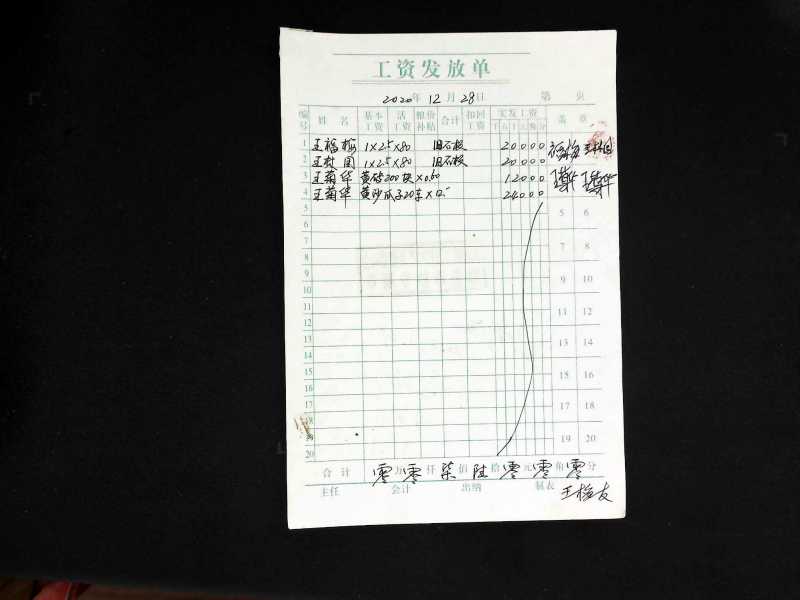 工资发放单
2020年 12月 28日 第 页
编号 姓名 基本工资 活工资 粮价补贴 合计 扣回工资 实发工资 盖章
千 百 十 元 角 分
1 王福梅 1×2.5×80 旧石板 20000
2 王林国 1×2.5×80 旧石板 20000
3 王菊华 黄砖200块×0.60 12000 王菊华
4 王菊华 黄沙瓜子20车×12 24000
5 5 6
6
7 7 8
8
9 9 10
10
11 11 12
12
13 13 14
14
15 15 16
16
17 17 18
18
19 19 20
20
合计 零万零仟柒佰陆拾零元零角零分
主任 会计 出纳 制表 王梅友